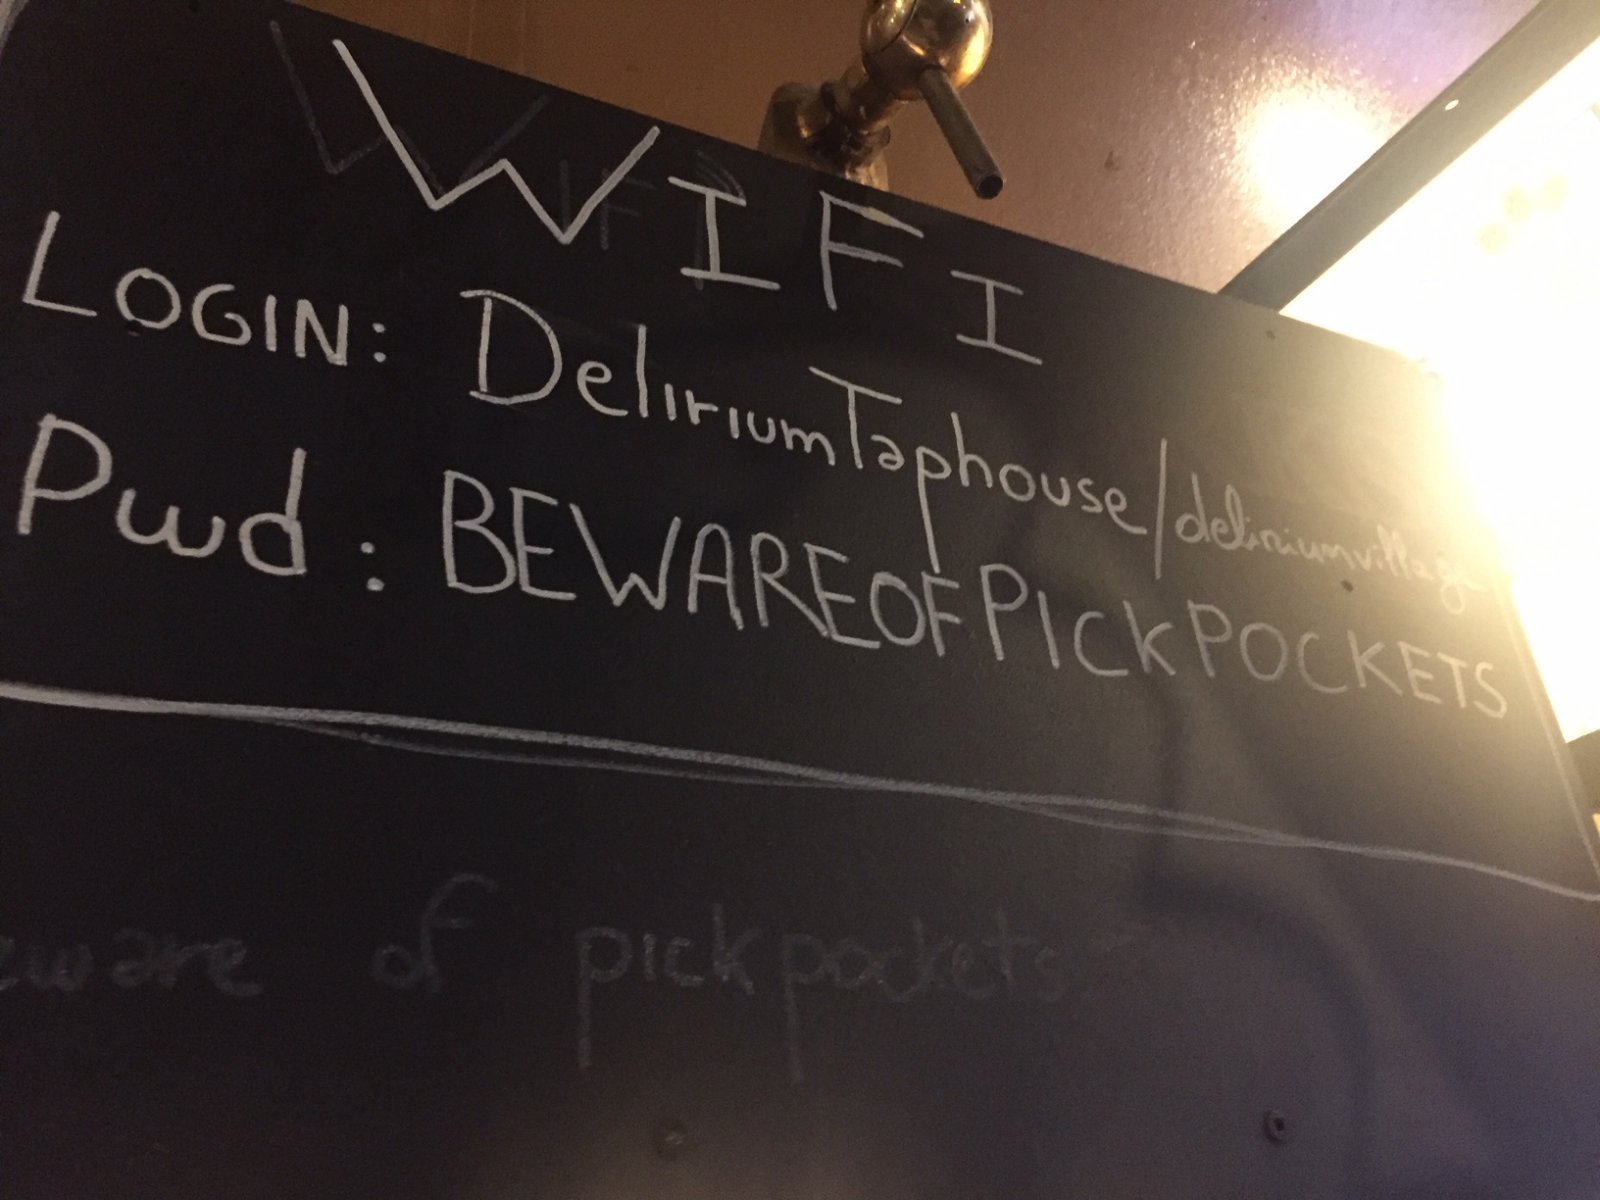 WIFI
LOGIN: DeliriumTaphouse/deliriumvillage
Pwd : BEWAREOFPICKPOCKETS
eware of pickpockets.